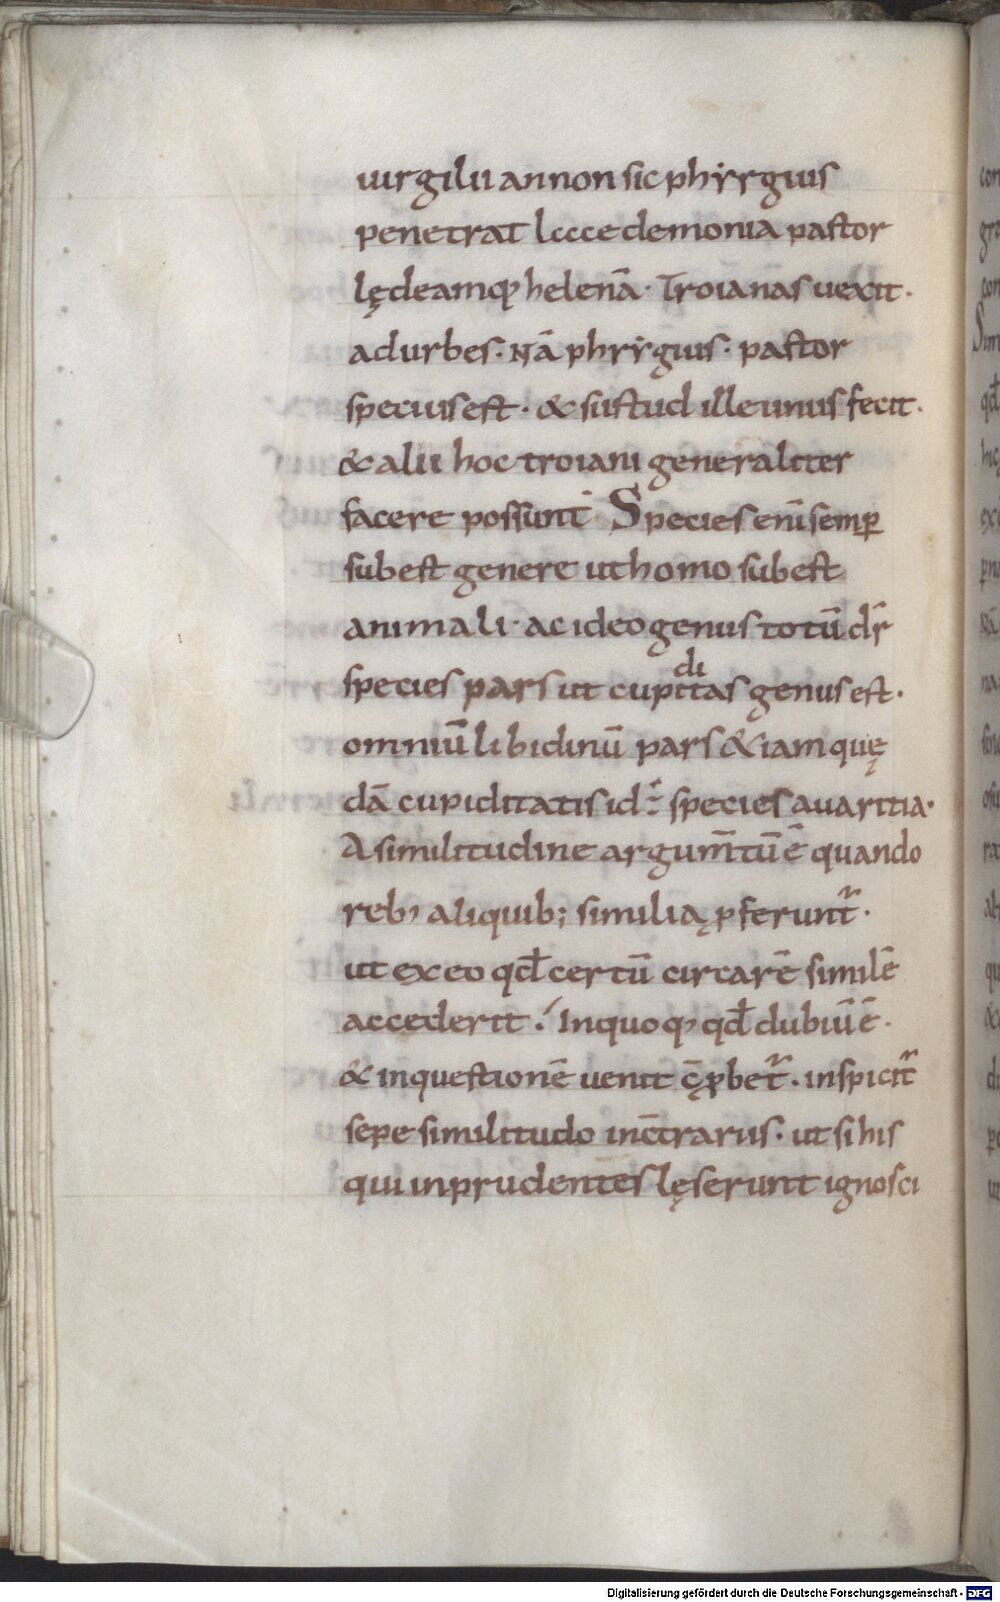 uirgilii an non sic phẏrgius
penetrat lccce demonia pastor
lędeamq; helenā· Troianas uexit·
ad urbes· Nā phrẏgius· pastor
species est· & si istud ille unus fecit·
& alii hoc troiani generaliter
facere possunt· Species enī semp̲
subest genere ut homo subest
animali· ac ideo genus totū dr̄
species pars ut cupiditas genus est·
omniū libidinū pars &iam quę
dā cupiditatis id÷ species auaritia·
A similitudine argum̄tū ē quando
reb; aliquib; similia p̲feruntr·
ut ex eo qd̄ certū circa rē similē
accederit· In quoq; qd̄ dubiū ē·
& in questionē uenit c̄ꝓbetr· inspicitr
sepe similitudo in c̄trariis· ut si his
qui inprudentes lęserunt ignosci
Digitalisierung gefördert durch die Deutsche Forschungsgemeinschaft - DFG